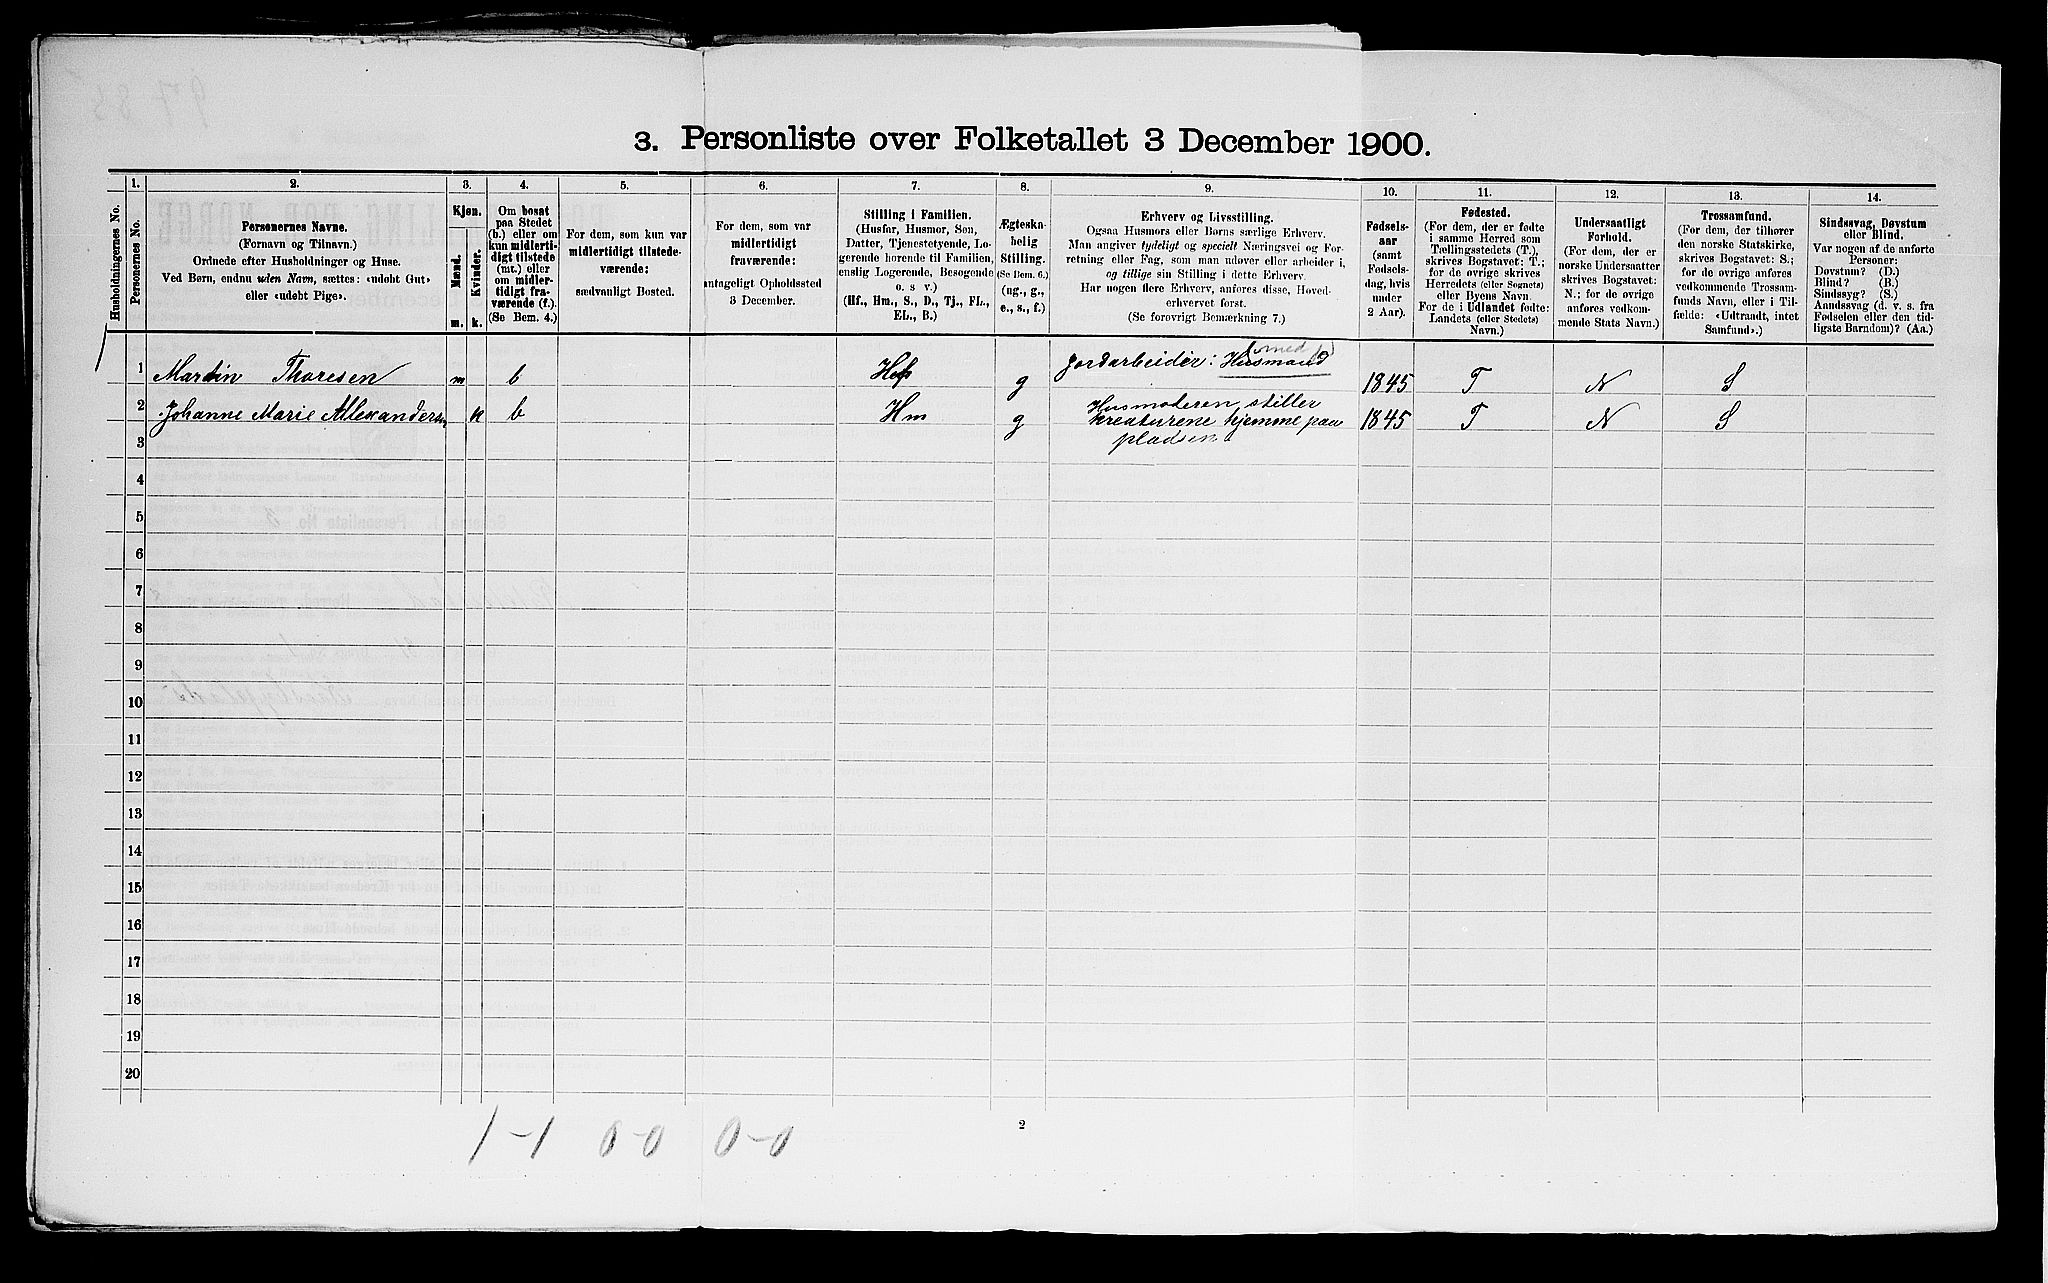 3. Personliste over Folketallet 3 December 1900.
Husholdningernes No.
1.
Personernes No.
2.
Personernes Navne.
(Fornavn og Tilnavn.)
Ordnede efter Husholdninger og Huse.
Ved Børn, endnu uden Navn, sættes: «udøbt Gut»
eller «udøbt Pige».
3.
Kjøn.
Mænd.
Kvinder.
m.
k.
4.
Om bosat
paa Stedet
(b.) eller om
kun midlerti-
digt tilstede
(mt.) eller
om midler-
tidigt fra-
værende (f.).
(Se Bem. 4.)
5.
For dem, som kun var
midlertidigt tilstede-
værende:
sædvanligt Bosted.
6.
For dem, som var
midlertidigt
fraværende:
antageligt Opholdssted
3 December.
7.
Stilling i Familien.
(Husfar, Husmor, Søn,
Datter, Tjenestetyende, Lo-
gerende hørende til Familien,
enslig Logerende, Besøgende
o. s v.)
(Hf., Hm., S., D., Tj., FL.,
EL., B.)
8.
Ægteska-
belig
Stilling.
(Se Bem. 6.)
(ug., g.,
e., s., f.)
9.
Erhverv og Livsstilling.
Ogsaa Husmors eller Børns særlige Erhverv.
Man angiver tydeligt og specielt Næringsvei og For-
retning eller Fag, som man udøver eller arbeider i,
og tillige sin Stilling i dette Erhverv.
Har nogen flere Erhverv, anføres disse, Hoved-
erhvervet først.
(Se forøvrigt Bemærkning 7.)
10.
Fødsels-
aar
(samt
Fødsels-
dag, hvis
under
2 Aar).
11.
Fødested.
(For dem, der er fødte
i samme Herred som
Tællingsstedets (T.),
skrives Bogstavet: T.;
for de øvrige skrives
Herredets (eller Sognets)
eller Byens Navn.
For de i Udlandet fødte:
Landets (eller Stedets)
Navn.)
12.
Undersaatligt
Forhold.
(For dem, der er
norske Undersaatter
skrives Bogstavet:
N.; for de øvrige
anføres vedkom-
mende Stats Navn.)
13.
Trossamfund.
(For dem, der tilhører
den norske Statskirke,
skrives Bogstavet: S.;
for de øvrige anføres
vedkommende Trossam-
funds Navn, eller i Til-
fælde: «Udtraadt, intet
Samfund».)
14.
Sindssvag, Døvstum
eller Blind.
Var nogen af de anførte
Personer:
Døvstum? (D.)
Blind? (B.)
Sindssyg? (S.)
Aandssvag (d. v. s. fra
Fødselen eller den tid-
ligste Barndom)? (Aa.)
med
1 1 Martin Thoresen m b Hf g Jordarbeider: Husmand 1845 T N S
2 Johanne Marie Allexandersen k b Hm g Husmoderen stiller
kreaturene hjemme paa
pladsen 1845 T N S
3
4
5
6
7
8
9
10
11
12
13
14
15
16
17
18
19
20
1-1 0-0 0-0
2